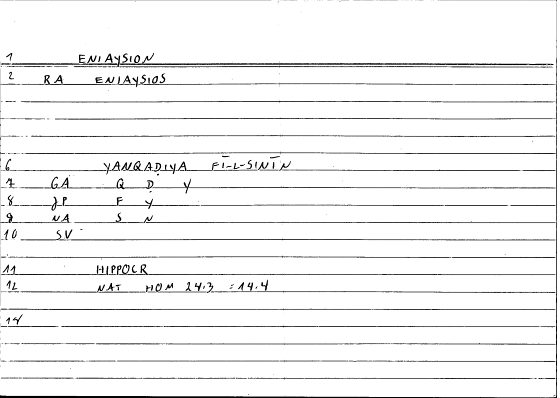 1 ENIAYSION
2 RA ENIAYSIOS
6 YANQAḌIYA FĪ-L-SINĪN
7 GA Q Ḍ Y
8 JP F Y
9 NA S N
10 SV
11 HIPPOCR
12 NAT HOM 24.3 = 14.4
14